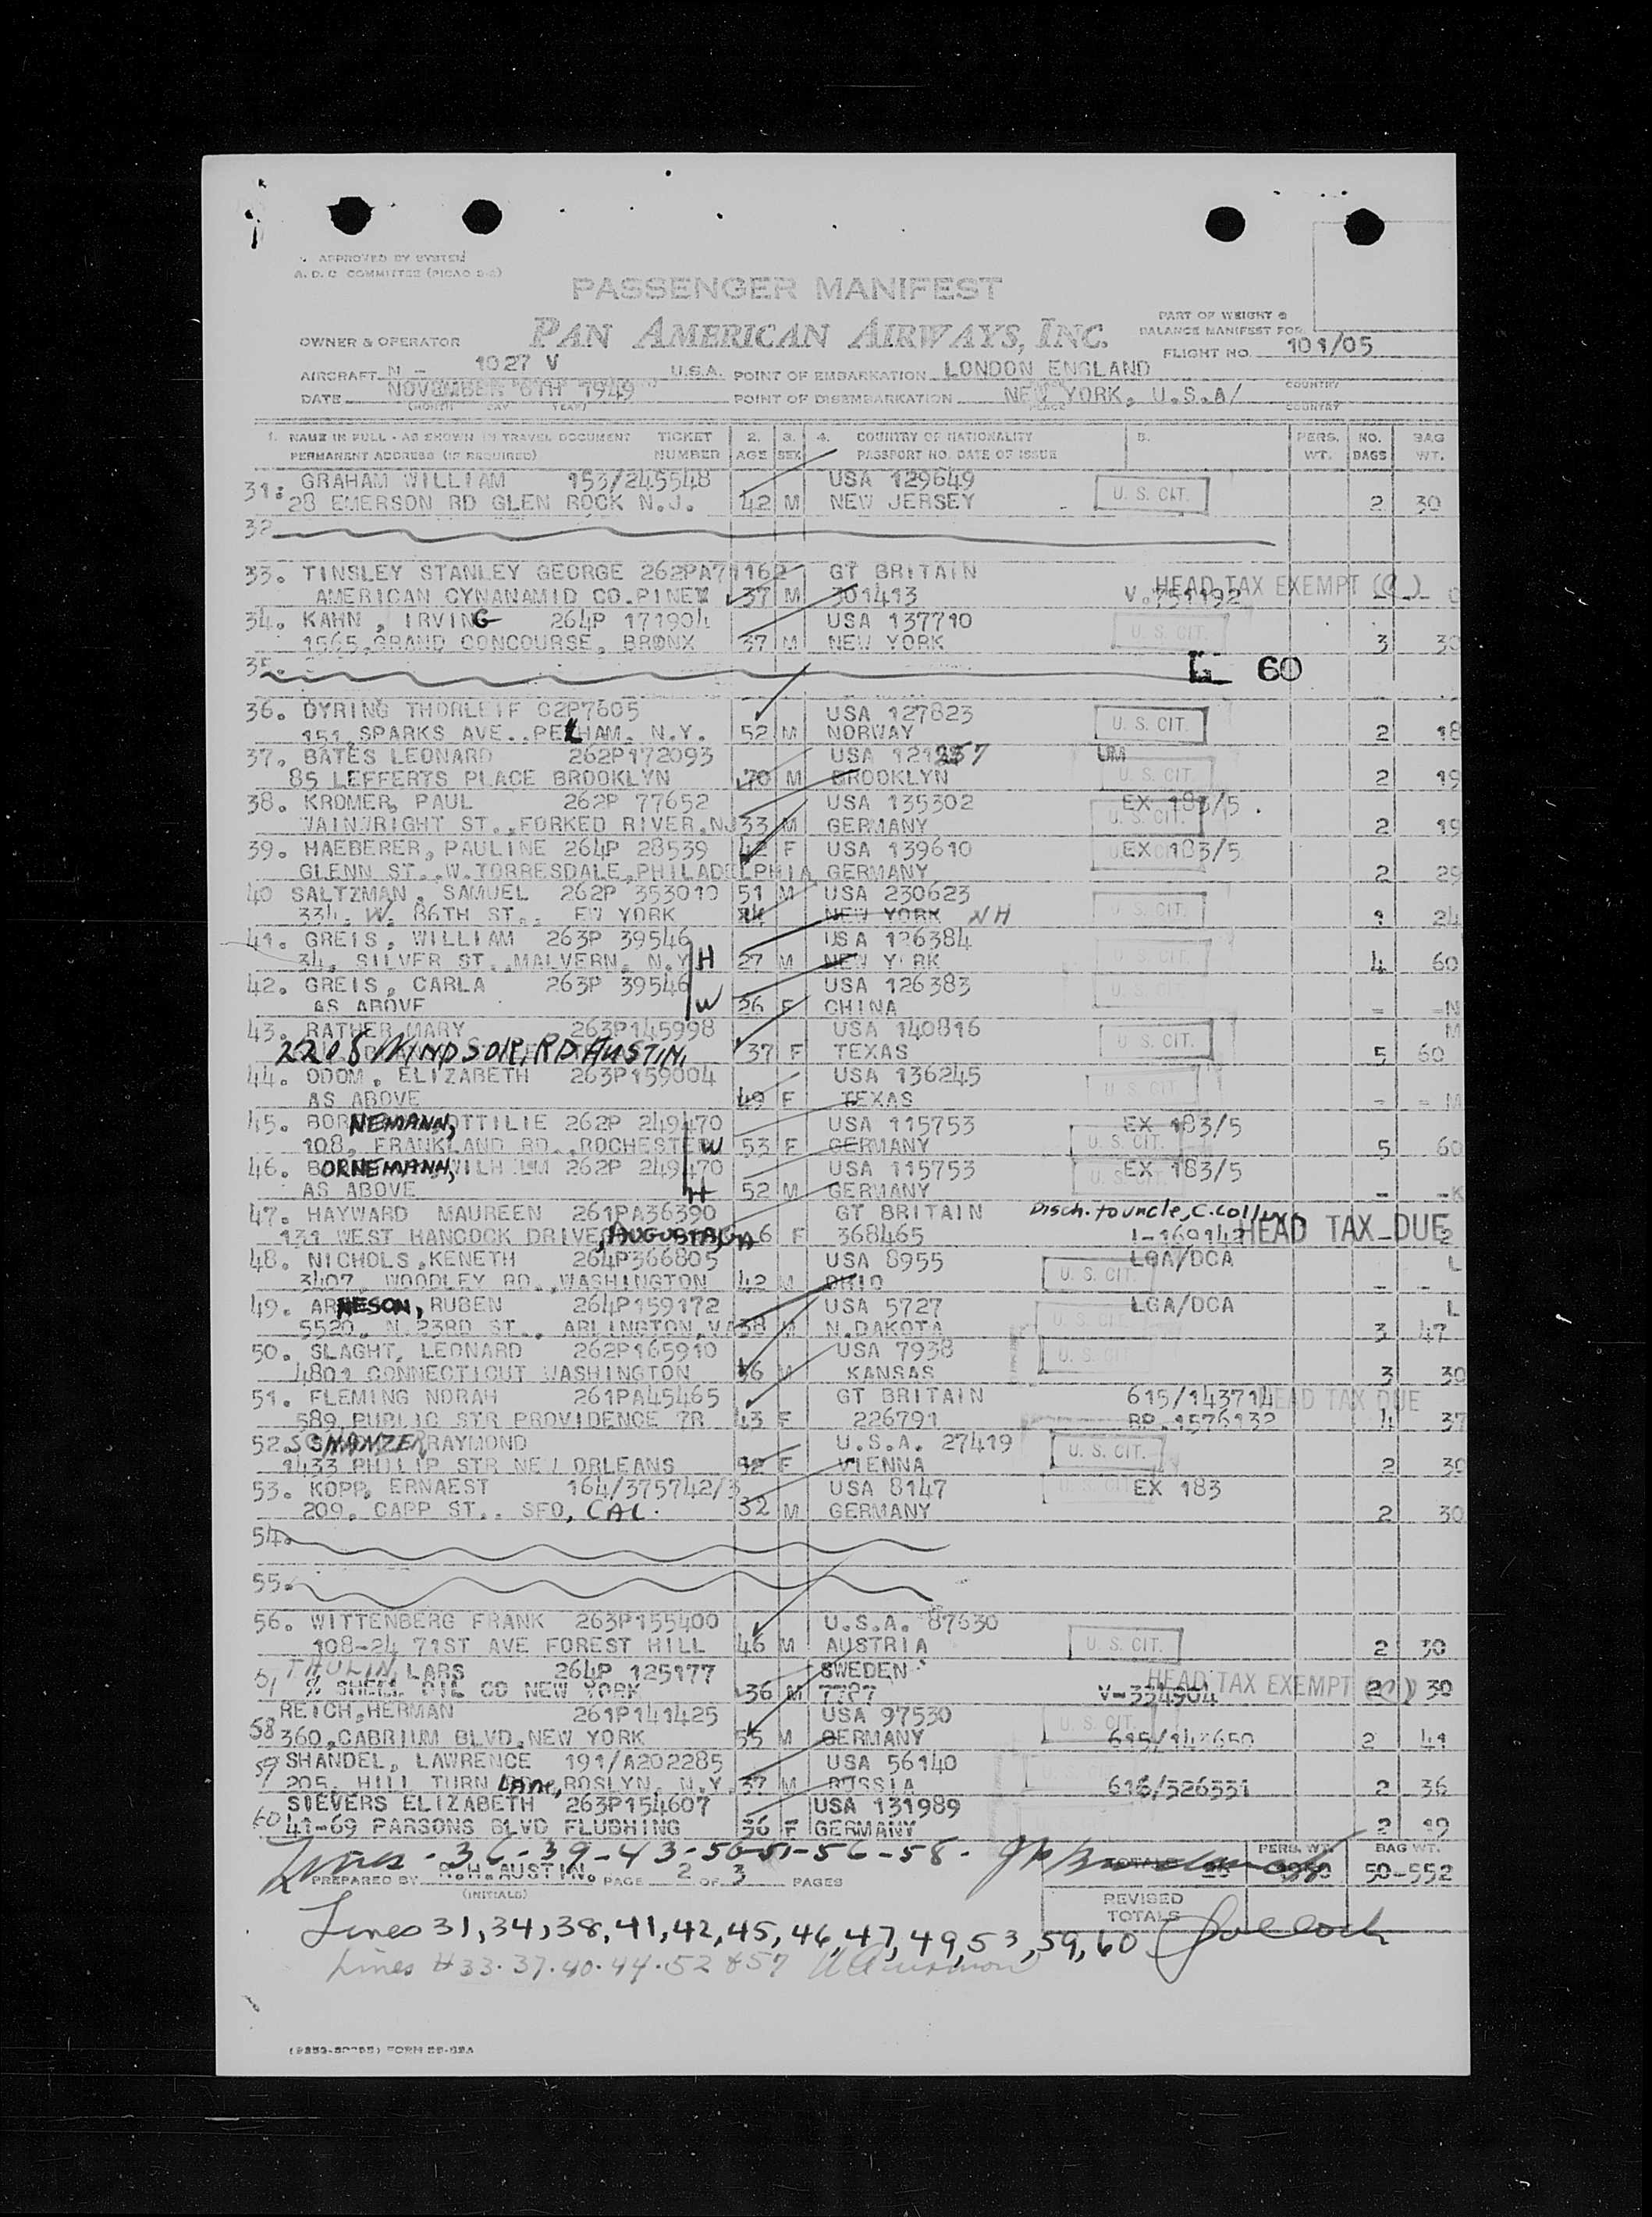 APPROVED BY SYSTEM
A. D. C COMMITTEE (PICAO 2-2)
PASSENGER MANIFEST
PAN AMERICAN AIRWAYS, INC.
PART OF WEIGHT &
BALANCE MANIFEST FOR
OWNER & OPERATOR
FLIGHT NO. 101/05
AIRCRAFT N - 1027 V U.S.A. POINT OF EMBARKATION LONDON ENGLAND
DATE NOVEMBER 6TH 1949 POINT OF DISEMBARKATION NEW YORK, U.S.A/ COUNTRY
(MONTH DAY YEAR) PLACE COUNTRY
1. NAME IN FULL - AS SHOWN IN TRAVEL DOCUMENT TICKET 2. 3. 4. COUNTRY OF NATIONALITY 5. PERS. NO. BAG
PERMANENT ADDRESS (IF REQUIRED) NUMBER AGE SEX PASSPORT NO. DATE OF ISSUE WT. BAGS WT.
31. GRAHAM WILLIAM 153/245548 USA 129649
28 EMERSON RD GLEN ROCK N.J. 42 M NEW JERSEY U. S. CIT. 2 30
32
33. TINSLEY STANLEY GEORGE 262PA71162 GT BRITAIN HEAD TAX EXEMPT
AMERICAN CYNANAMID CO.PINE 37 M 301413 V.751192
34. KAHN , IRVING 264P 171904 USA 137710
1565,GRAND CONCOURSE, BRONX 37 M NEW YORK U. S. CIT. 3 30
35. 60
36. DYRING THORLEIF 02P7605 USA 127823
151 SPARKS AVE..PELHAM. N.Y. 52 M NORWAY U. S. CIT. 2 18
37. BATES LEONARD 262P172093 USA 121257 UM
85 LEFFERTS PLACE BROOKLYN 70 M BROOKLYN U. S. CIT. 2 19
38. KROMER, PAUL 262P 77652 USA 135302 EX 183/5 .
WAINWRIGHT ST.,FORKED RIVER.NJ 33 M GERMANY U. S. CIT. 2 19
39. HAEBERER, PAULINE 264P 28539 42 F USA 139610 EX 183/5
GLENN ST..W.TORRESDALE,PHILADELPHIA GERMANY 2 29
40 SALTZMAN , SAMUEL 262P 353010 51 M USA 230623
334. W. 86TH ST.. EW YORK NEW YORK NH U. S. CIT. 1 24
41. GREIS, WILLIAM 263P 39546 USA 126384
34, SILVER ST.,MALVERN. N.Y H 27 M NEW Y RK U. S. CIT. 4 60
42. GREIS, CARLA 263P 39546 USA 126383
AS ABOVE W 26 F CHINA U. S. CIT. - -N
43. RATHER MARY 263P145998 USA 140816 M
2208 WINDSOR, RD AUSTIN, 37 F TEXAS U. S. CIT. 5 60
44. ODOM, ELIZABETH 263P159004 USA 136245
AS ABOVE 49 F TEXAS U. S. CIT. - - M
45. BORNEMANN, OTTILIE 262P 249470 USA 115753 EX 183/5
108, FRANKLAND RD..ROCHESTER W 53 F GERMANY U. S. CIT. 5 60
46. BORNEMANN, WILHELM 262P 249470 USA 115753 EX 183/5
AS ABOVE H 52 M GERMANY U. S. CIT. - -K
47. HAYWARD MAUREEN 261PA36390 GT BRITAIN Disch. to uncle, C. Collins
131 WEST HANCOCK DRIVE, AUGUSTA, GA 6 F 368465 I-169142 HEAD TAX DUE 2
48. NICHOLS,KENETH 264P366805 USA 8955 LGA/DCA L
3407, WOODLEY RD.,WASHINGTON 42 M OHIO U. S. CIT. - -
49. ARNESON, RUBEN 264P159172 USA 5727 LGA/DCA L
5520, N.23RD ST., ARLINGTON,VA 38 M N.DAKOTA U. S. CIT. 3 47
50. SLAGHT, LEONARD 262P165910 USA 7938
4801 CONNECTICUT WASHINGTON 36 M KANSAS U. S. CIT 3 30
51. FLEMING NORAH 261PA45465 GT BRITAIN 615/143714 HEAD TAX DUE
589 PUBLIC STR PROVIDENCE 7R 43 F 226791 RP.1576132 4 37
52. SCHANZER RAYMOND U.S.A. 27419
1433 PHILIP STR NEW ORLEANS F VIENNA U. S. CIT. 2 30
53. KOPP, ERNAEST 164/375742/3 USA 8147 EX 183
209, CAPP ST.. SFO, CAL. 32 M GERMANY U. S. CIT 2 30
54.
55.
56. WITTENBERG FRANK 263P155400 U.S.A. 87630
108-24 71ST AVE FOREST HILL 46 M AUSTRIA U. S. CIT. 2 30
57 THULIN, LARS 264P 125177 SWEDEN HEAD TAX EXEMPT
% SHELL OIL CO NEW YORK 36 M 7787 V-334904 2 30
REICH,HERMAN 261P141425 USA 97530
58 360,CABRIUM BLVD,NEW YORK 55 M GERMANY U. S. CIT. 2 41
59 SHANDEL, LAWRENCE 191/A202285 USA 56140
205, HILL TURN Lane, ROSLYN. N.Y. 37 M RUSSIA U. S. CIT. 616/326331 2 36
SIEVERS ELIZABETH 263P154607 USA 131989
60 41-69 PARSONS BLVD FLUBHING 36 F GERMANY 2 19
Lines - 36-39-43-50-51-56-58-
PERS. WT. BAG WT.
PREPARED BY R.H.AUSTIN. PAGE 2 OF 3 PAGES TOTALS 50-552
(INITIALS)
REVISED
TOTALS
Lines 31,34,38,41,42,45,46,47,49,53,59,60
Lines # 33.37.40.44.52 & 57